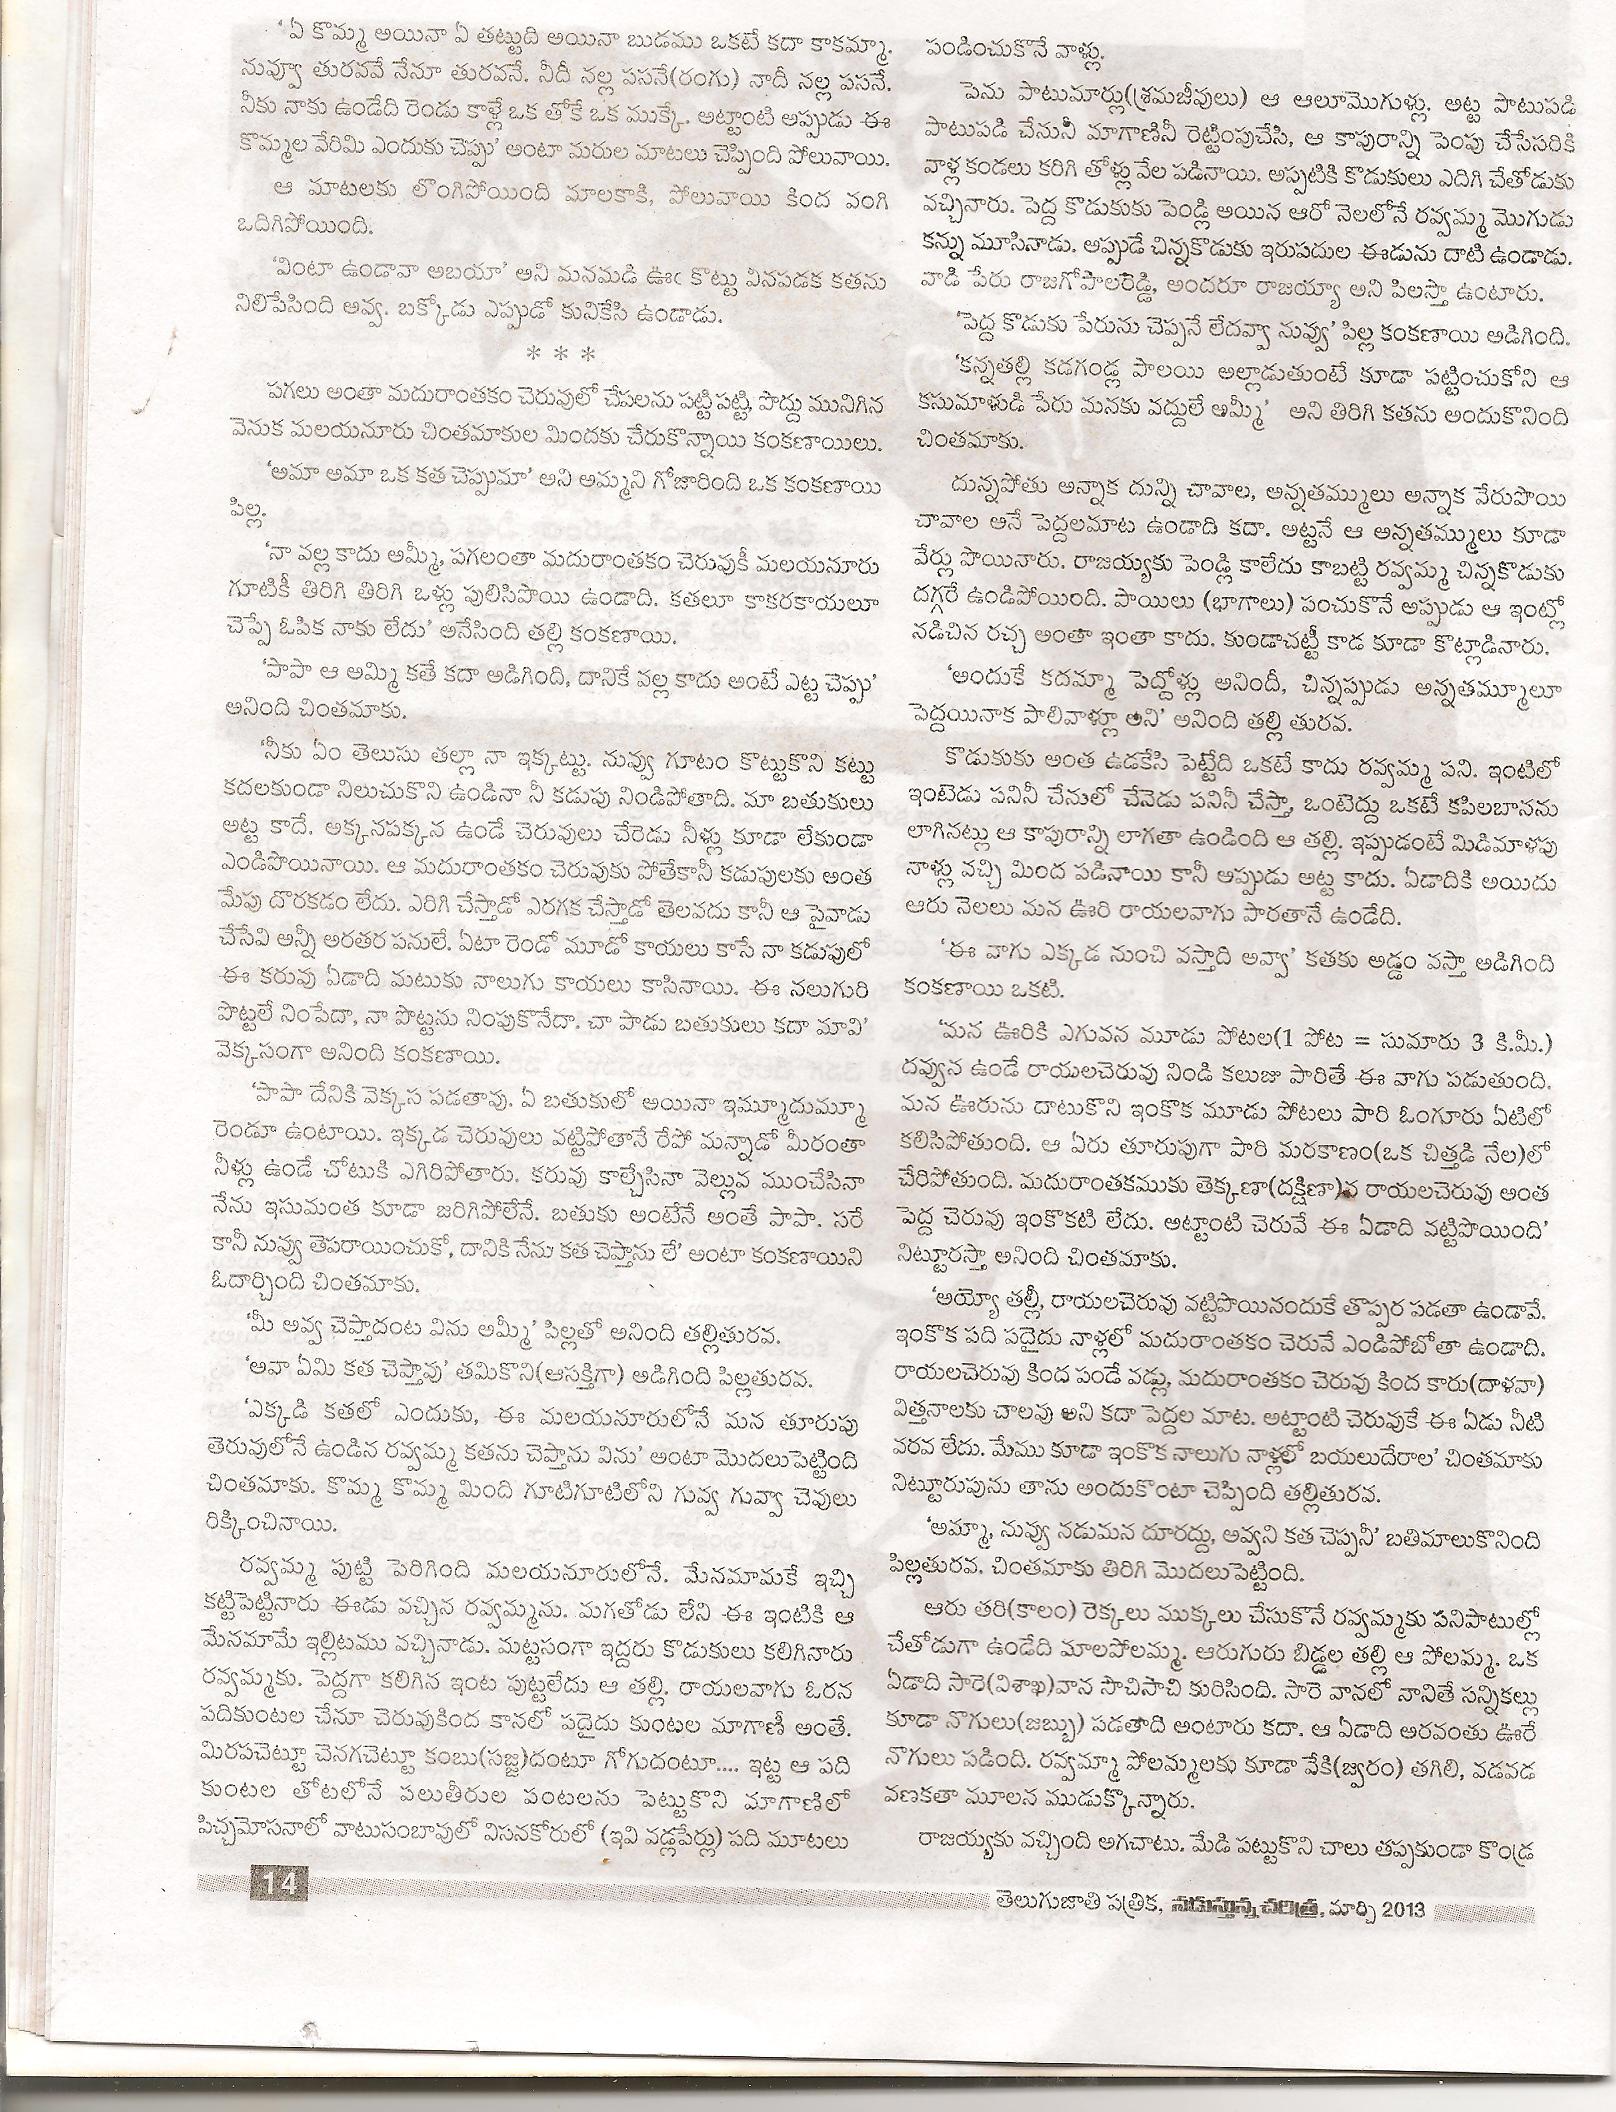 ‘ఏ కొమ్మ అయినా ఏ తట్టుది అయినా బుడము ఒకటే కదా కాకమ్మా.
నువ్వూ తురవవే నేనూ తురవనే. నీదీ నల్ల పసనే(రంగు) నాదీ నల్ల పసనే.
నీకు నాకు ఉండేది రెండు కాళ్లే ఒక తోకే ఒక ముక్కే. అట్టాంటి అప్పుడు ఈ
కొమ్మల వేరిమి ఎందుకు చెప్పు’ అంటా మరుల మాటలు చెప్పింది పోలువాయి.
ఆ మాటలకు లొంగిపోయింది మాలకాకి, పోలువాయి కింద వంగి
ఒదిగిపోయింది.
‘వింటా ఉండావా అబయా’ అని మనమడి ఊఁ కొట్టు వినపడక కతను
నిలిపేసింది అవ్వ. బక్కోడు ఎప్పుడో కునికేసి ఉండాడు.
* * *
పగలు అంతా మదురాంతకం చెరువులో చేపలను పట్టిపట్టి, పొద్దు మునిగిన
వెనుక మలయనూరు చింతమాకుల మిందకు చేరుకొన్నాయి కంకణాయిలు.
‘అమా అమా ఒక కత చెప్పుమా’ అని అమ్మని గోజారింది ఒక కంకణాయి
పిల్ల.
‘నా వల్ల కాదు అమ్మీ, పగలంతా మదురాంతకం చెరువుకీ మలయనూరు
గూటికీ తిరిగి తిరిగి ఒళ్లు పులిసిపొయి ఉండాది. కతలూ కాకరకాయలూ
చెప్పే ఓపిక నాకు లేదు’ అనేసింది తల్లి కంకణాయి.
‘పాపా ఆ అమ్మి కతే కదా అడిగింది, దానికే వల్ల కాదు అంటే ఎట్ట చెప్పు’
అనింది చింతమాకు.
‘నీకు ఏం తెలుసు తల్లా నా ఇక్కట్టు. నువ్వు గూటం కొట్టుకొని కట్టు
కదలకుండా నిలుచుకొని ఉండినా నీ కడుపు నిండిపోతాది. మా బతుకులు
అట్ట కాదే. అక్కనపక్కన ఉండే చెరువులు చేరెడు నీళ్లు కూడా లేకుండా
ఎండిపొయినాయి. ఆ మదురాంతకం చెరువుకు పోతేకానీ కడుపులకు అంత
మేపు దొరకడం లేదు. ఎరిగి చేస్తాడో ఎరగక చేస్తాడో తెలవదు కానీ ఆ పైవాడు
చేసేవి అన్నీ అరతర పనులే. ఏటా రెండో మూడో కాయలు కాసే నా కడుపులో
ఈ కరువు ఏడాది మటుకు నాలుగు కాయలు కాసినాయి. ఈ నలుగురి
పొట్టలే నింపేదా, నా పొట్టను నింపుకొనేదా. చా పాడు బతుకులు కదా మావి’
వెక్కసంగా అనింది కంకణాయి.
‘పాపా దేనికి వెక్కస పడతావు. ఏ బతుకులో అయినా ఇమ్మూదుమ్మూ
రెండూ ఉంటాయి. ఇక్కడ చెరువులు వట్టిపోతానే రేపో మన్నాడో మీరంతా
నీళ్లు ఉండే చోటుకి ఎగిరిపోతారు. కరువు కాల్చేసినా వెల్లువ ముంచేసినా
నేను ఇసుమంత కూడా జరిగిపోలేనే. బతుకు అంటేనే అంతే పాపా. సరే
కానీ నువ్వు తెపరాయించుకో, దానికి నేను కత చెప్తాను లే’ అంటా కంకణాయిని
ఓదార్చింది చింతమాకు.
‘మీ అవ్వ చెప్తాదంట విను అమ్మీ’ పిల్లతో అనింది తల్లితురవ.
‘అవా ఏమి కత చెప్తావు’ తమికొని(ఆసక్తిగా) అడిగింది పిల్లతురవ.
‘ఎక్కడి కతలో ఎందుకు, ఈ మలయనూరులోనే మన తూరుపు
తెరువులోనే ఉండిన రవ్వమ్మ కతను చెప్తాను విను’ అంటా మొదలుపెట్టింది
చింతమాకు. కొమ్మ కొమ్మ మింది గూటిగూటిలోని గువ్వ గువ్వా చెవులు
రిక్కించినాయి.
రవ్వమ్మ పుట్టి పెరిగింది మలయనూరులోనే. మేనమామకే ఇచ్చి
కట్టిపెట్టినారు ఈడు వచ్చిన రవ్వమ్మను. మగతోడు లేని ఈ ఇంటికి ఆ
మేనమామే ఇల్లిటము వచ్చినాడు. మట్టసంగా ఇద్దరు కొడుకులు కలిగినారు
రవ్వమ్మకు. పెద్దగా కలిగిన ఇంట పుట్టలేదు ఆ తల్లి. రాయలవాగు ఓరన
పదికుంటల చేనూ చెరువుకింద కానలో పదైదు కుంటల మాగాణీ అంతే.
మిరపచెట్టూ చెనగచెట్టూ కంబు(సజ్జ)దంటూ గోగుదంటూ.... ఇట్ట ఆ పది
కుంటల తోటలోనే పలుతీరుల పంటలను పెట్టుకొని మాగాణిలో
పిచ్చమోసనాలో వాటుసంబావులో విసనకోరులో (ఇవి వడ్లపేర్లు) పది మూటలు
పండించుకొనే వాళ్లు.
పెను పాటుమార్లు(శ్రమజీవులు) ఆ ఆలూమొగుళ్లు. అట్ట పాటుపడి
పాటుపడి చేనునీ మాగాణినీ రెట్టింపుచేసి, ఆ కాపురాన్ని పెంపు చేసేసరికి
వాళ్ల కండలు కరిగి తోళ్లు వేల పడినాయి. అప్పటికి కొడుకులు ఎదిగి చేతోడుకు
వచ్చినారు. పెద్ద కొడుకుకు పెండ్లి అయిన ఆరో నెలలోనే రవ్వమ్మ మొగుడు
కన్ను మూసినాడు. అప్పుడే చిన్నకొడుకు ఇరుపదుల ఈడును దాటి ఉండాడు.
వాడి పేరు రాజగోపాలరెడ్డి, అందరూ రాజయ్యా అని పిలస్తా ఉంటారు.
‘పెద్ద కొడుకు పేరును చెప్పనే లేదవ్వా నువ్వు’ పిల్ల కంకణాయి అడిగింది.
‘కన్నతల్లి కడగండ్ల పాలయి అల్లాడుతుంటే కూడా పట్టించుకోని ఆ
కసుమాళుడి పేరు మనకు వద్దులే అమ్మీ’ అని తిరిగి కతను అందుకొనింది
చింతమాకు.
దున్నపోతు అన్నాక దున్ని చావాల, అన్నతమ్ములు అన్నాక వేరుపొయి
చావాల అనే పెద్దలమాట ఉండాది కదా. అట్టనే ఆ అన్నతమ్ములు కూడా
వేర్లు పొయినారు. రాజయ్యకు పెండ్లి కాలేదు కాబట్టి రవ్వమ్మ చిన్నకొడుకు
దగ్గరే ఉండిపోయింది. పాయిలు (భాగాలు) పంచుకొనే అప్పుడు ఆ ఇంట్లో
నడిచిన రచ్చ అంతా ఇంతా కాదు. కుండాచట్టీ కాడ కూడా కొట్లాడినారు.
‘అందుకే కదమ్మా పెద్దోళ్లు అనిందీ, చిన్నప్పుడు అన్నతమ్మూలూ
పెద్దయినాక పాలివాళ్లూ అని’ అనింది తల్లి తురవ.
కొడుకుకు అంత ఉడకేసి పెట్టేది ఒకటే కాదు రవ్వమ్మ పని. ఇంటిలో
ఇంటెడు పనినీ చేనులో చేనెడు పనినీ చేస్తా, ఒంటెద్దు ఒకటే కపిలబానను
లాగినట్లు ఆ కాపురాన్ని లాగతా ఉండింది ఆ తల్లి. ఇప్పుడంటే మిడిమాళపు
నాళ్లు వచ్చి మింద పడినాయి కానీ అప్పుడు అట్ట కాదు. ఏడాదికి అయిదు
ఆరు నెలలు మన ఊరి రాయలవాగు పారతానే ఉండేది.
‘ఈ వాగు ఎక్కడ నుంచి వస్తాది అవ్వా’ కతకు అడ్డం వస్తా అడిగింది
కంకణాయి ఒకటి.
‘మన ఊరికి ఎగువన మూడు పోటల(1 పోట = సుమారు 3 కి.మీ.)
దవ్వున ఉండే రాయలచెరువు నిండి కలుజు పారితే ఈ వాగు పడుతుంది.
మన ఊరును దాటుకొని ఇంకొక మూడు పోటలు పారి ఓంగూరు ఏటిలో
కలిసిపోతుంది. ఆ ఏరు తూరుపుగా పారి మరకాణం(ఒక చిత్తడి నేల)లో
చేరిపోతుంది. మదురాంతకముకు తెక్కణా(దక్షిణా)న రాయలచెరువు అంత
పెద్ద చెరువు ఇంకొకటి లేదు. అట్టాంటి చెరువే ఈ ఏడాది వట్టిపొయింది’
నిట్టూరస్తా అనింది చింతమాకు.
‘అయ్యో తల్లీ, రాయలచెరువు వట్టిపొయినందుకే తొప్పర పడతా ఉండావే.
ఇంకొక పది పదైదు నాళ్లలో మదురాంతకం చెరువే ఎండిపోబోతా ఉండాది.
రాయలచెరువు కింద పండే వడ్లు, మదురాంతకం చెరువు కింద కారు(దాళవా)
విత్తనాలకు చాలవు అని కదా పెద్దల మాట. అట్టాంటి చెరువుకే ఈ ఏడు నీటి
వరవ లేదు. మేము కూడా ఇంకొక నాలుగు నాళ్లలో బయలుదేరాల’ చింతమాకు
నిట్టూరుపును తాను అందుకొంటా చెప్పింది తల్లితురవ.
‘అమ్మా, నువ్వు నడుమన దూరద్దు, అవ్వని కత చెప్పనీ’ బతిమాలుకొనింది
పిల్లతురవ. చింతమాకు తిరిగి మొదలుపెట్టింది.
ఆరు తరి(కాలం) రెక్కలు ముక్కలు చేసుకొనే రవ్వమ్మకు పనిపాటుల్లో
చేతోడుగా ఉండేది మాలపోలమ్మ. ఆరుగురు బిడ్డల తల్లి ఆ పోలమ్మ. ఒక
ఏడాది సారె(విశాఖ)వాన సాచిసాచి కురిసింది. సారె వానలో నానితే సన్నికల్లు
కూడా నొగులు(జబ్బు) పడతాది అంటారు కదా. ఆ ఏడాది అరవంతు ఊరే
నొగులు పడింది. రవ్వమ్మా పోలమ్మలకు కూడా వేకి(జ్వరం) తగిలి, వడవడ
వణకతా మూలన ముడుక్కొన్నారు.
రాజయ్యకు వచ్చింది అగచాటు. మేడి పట్టుకొని చాలు తప్పకుండా కొండ్ర
14
తెలుగుజాతి పత్రిక, నడుస్తున్న చరిత్ర, మార్చి 2013